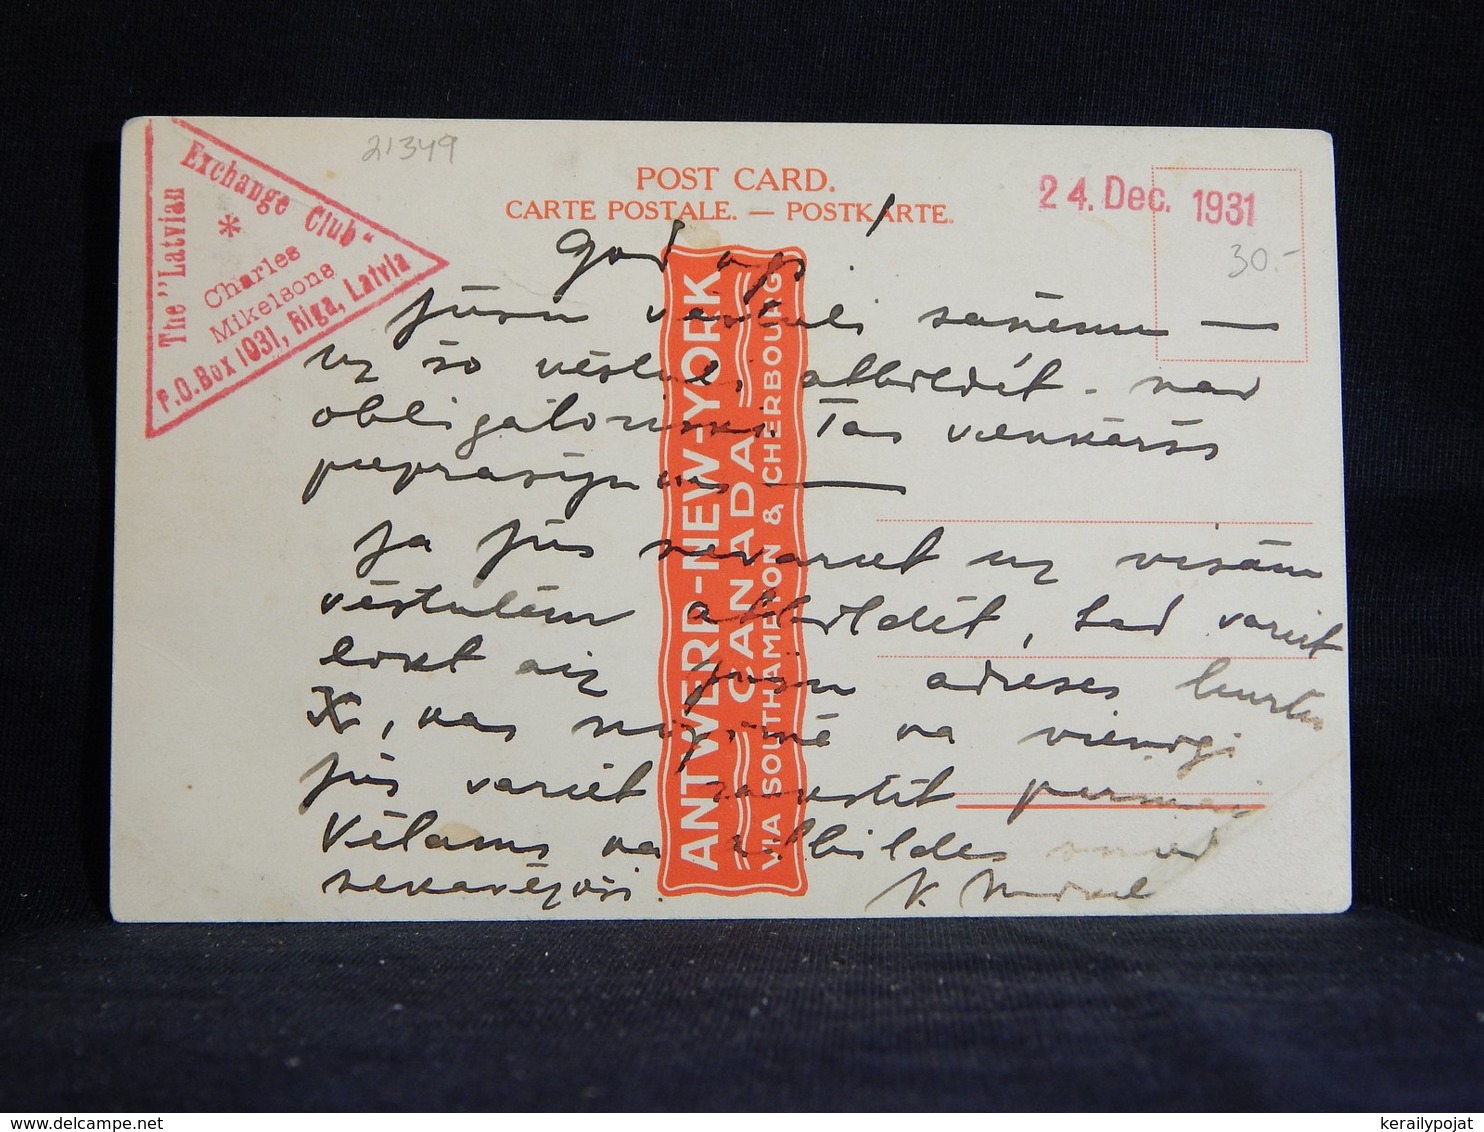 21349
The "Latvian
Exchange Club"
*
Charles
Mikelsons
P.O.Box 1931, Riga, Latvia
POST CARD.
CARTE POSTALE. — POSTKARTE.
24. Dec. 1931
30.-
ANTWERP-NEW-YORK
CANADA
VIA SOUTHAMPTON & CHERBOURG
God.
Jūsu vēstuli saņēmu —
uz šo vēstuli atbildēt nav
obligātoriski. Tas vienkāršs
pieprasījums —
Ja Jūs nevariet uz visām
vēstulēm atbildēt, tad variet
likt aiz Jūsu adreses
X, kas nozīmē ka vienīgi
Jūs variet rakstīt
Vēlams ka atbildes
nekavējoši.
kerailypojat